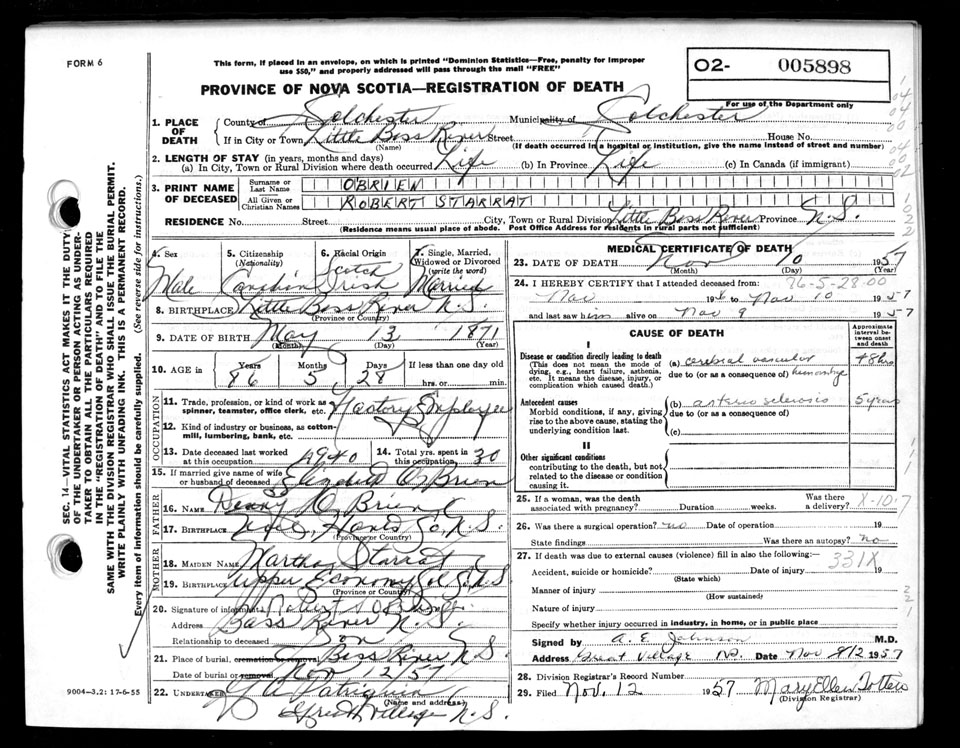 FORM 6
This form, if placed in an envelope, on which is printed "Dominion Statistics—Free, penalty for improper
use $50," and properly addressed will pass through the mail "FREE"
O2- 005898
PROVINCE OF NOVA SCOTIA—REGISTRATION OF DEATH
For use of the Department only
1. PLACE OF DEATH
County of Colchester Municipality of Colchester
If in City or Town Little Bass River Street House No.
(Name) (If death occurred in a hospital or institution, give the name instead of street and number)
2. LENGTH OF STAY (in years, months and days)
(a) In City, Town or Rural Division where death occurred Life (b) In Province Life (c) In Canada (if immigrant)
3. PRINT NAME OF DECEASED
Surname or Last Name OBRIEN
All Given or Christian Names ROBERT STARRAT
RESIDENCE No. Street City, Town or Rural Division Little Bass River Province N.S.
(Residence means usual place of abode. Post Office Address for residents in rural parts not sufficient)
4. Sex 5. Citizenship (Nationality) 6. Racial Origin 7. Single, Married, Widowed or Divorced (write the word)
Male Canadian Scotch Irish Married
8. BIRTHPLACE Little Bass River N.S.
(Province or Country)
9. DATE OF BIRTH May 13 1871
(Month) (Day) (Year)
10. AGE in Years Months Days If less than one day
86 5 28 hrs. or min.
OCCUPATION
11. Trade, profession, or kind of work as spinner, teamster, office clerk, etc. Factory Employee
12. Kind of industry or business, as cotton-mill, lumbering, bank, etc.
13. Date deceased last worked at this occupation 1940 14. Total yrs. spent in this occupation 30
15. If married give name of wife or husband of deceased Elizabeth O'Brien
FATHER
16. Name O'Brien
17. Birthplace Hants Co, N.S.
(Province or Country)
MOTHER
18. MAIDEN NAME Martha Starrat
19. BIRTHPLACE Upper Economy Col Co N.S
(Province or Country)
20. Signature of informant Robert S O'Brien
Address Bass River N.S.
Relationship to deceased Son
21. Place of burial, cremation or removal Bass River N.S.
Date of burial or removal Nov 12/57
22. UNDERTAKER
(Name and address)
Village N.S.
9004—3.2: 17-6-55
MEDICAL CERTIFICATE OF DEATH
23. DATE OF DEATH Nov 10 1957
(Month) (Day) (Year)
24. I HEREBY CERTIFY that I attended deceased from: 86-5-28-00
Nov 19 to Nov 10 1957
and last saw him alive on Nov 9 1957
CAUSE OF DEATH
Approximate interval between onset and death
I
Disease or condition directly leading to death
(This does not mean the mode of dying, e.g., heart failure, asthenia, etc. It means the disease, injury, or complication which caused death.)
(a) cerebral vascular 48 hrs
due to (or as a consequence of) hemorrhage
Antecedent causes
Morbid conditions, if any, giving rise to the above cause, stating the underlying condition last.
(b) arterio sclerosis 5 years
due to (or as a consequence of)
(c)
II
Other significant conditions
contributing to the death, but not related to the disease or condition causing it.
25. If a woman, was the death associated with pregnancy? Duration weeks. Was there a delivery? X-10-7
26. Was there a surgical operation? no Date of operation 19
State findings Was there an autopsy? no
27. If death was due to external causes (violence) fill in also the following:—
331X
Accident, suicide or homicide? Date of injury 19
(State which)
Manner of injury
(How sustained)
Nature of injury
Specify whether injury occurred in industry, in home, or in public place
Signed by A. E. Johnson M.D.
Address Great Village N.S. Date Nov 1957
28. Division Registrar's Record Number
29. Filed Nov. 12 1957 Mary Ellen Totten
(Division Registrar)
SEC. 14—VITAL STATISTICS ACT MAKES IT THE DUTY
OF THE UNDERTAKER OR PERSON ACTING AS UNDER-
TAKER TO OBTAIN ALL THE PARTICULARS REQUIRED
IN THE "REGISTRATION OF DEATH" AND TO FILE THE
SAME WITH THE DIVISION REGISTRAR WHO SHALL ISSUE THE BURIAL PERMIT.
WRITE PLAINLY WITH UNFADING INK. THIS IS A PERMANENT RECORD.
Every item of information should be carefully supplied. (See reverse side for instructions.)